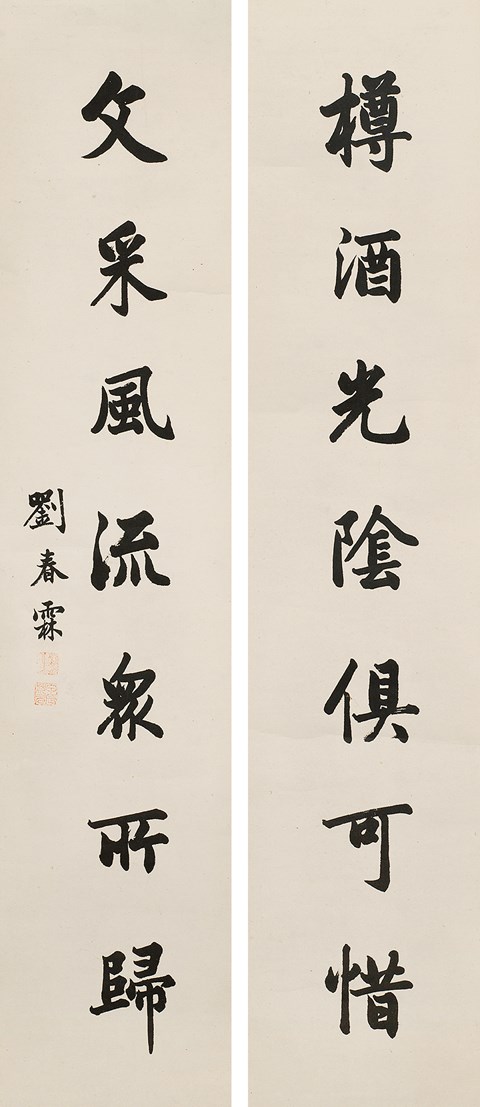 樽酒光陰俱可惜
文采風流衆所歸
劉春霖